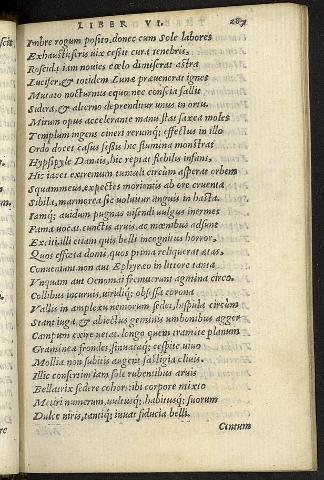 LIBER VI.
Imbre rogum posito. donec cum Sole labores
Exhaustis iris uix cessit cura tenebris,
Roscida iam noutes cœlo dimiserat astra
Lucifer, & totidem Lunæ præuenerat ignes
Mutato nocturnus equo, nec conscia fallit
Sidera, & alterno deprenditur unus in ortu.
Mirum opus accelerante manu stat saxea moles
Templum ingens cineri rerumq; effectus in illo
Ordo docet casus fessis hic flumina monstrat
Hypsipyle Danais, hic reptat flebilis infans,
Hic iacet extremum tumuli circum asperat orbem
Squammeus, expectes morientis ab ore cruenta
Sibila, marmorea sic uoluitur anguis in hasta.
Iamq; auidum pugnas uisendi uulgus inermes
Fama uocat cunctis aruis, ac mœnibus adsunt
Exciti, illi etiam quis belli incognitus horror,
Quos effœta domi, quos prima reliquerat ætas.
Conueniunt, non aut Ephyreo in littore tanta
Vnquam aut Oenomai fremuerunt agmina circo.
Collibus incuruis, uiridiq; obsessa corona
Vallis in amplexu nemorum sedet, hispida circum
Stant iuga, & obiectus geminis umbonibus agger
Campum exire uetat. longo quem tramite planum
Gramineæ frondes, sinuataq; cespite uiuo
Mollia non subitis augent fastigia cliuis.
Illic conferti iam sole rubentibus aruis
Bellatrix sedere cohors: ibi corpore mixto
Metiri numerum, uultusq;, habitusq; suorum
Dulce uiris, tantiq; iuuat fiducia belli.
Centum